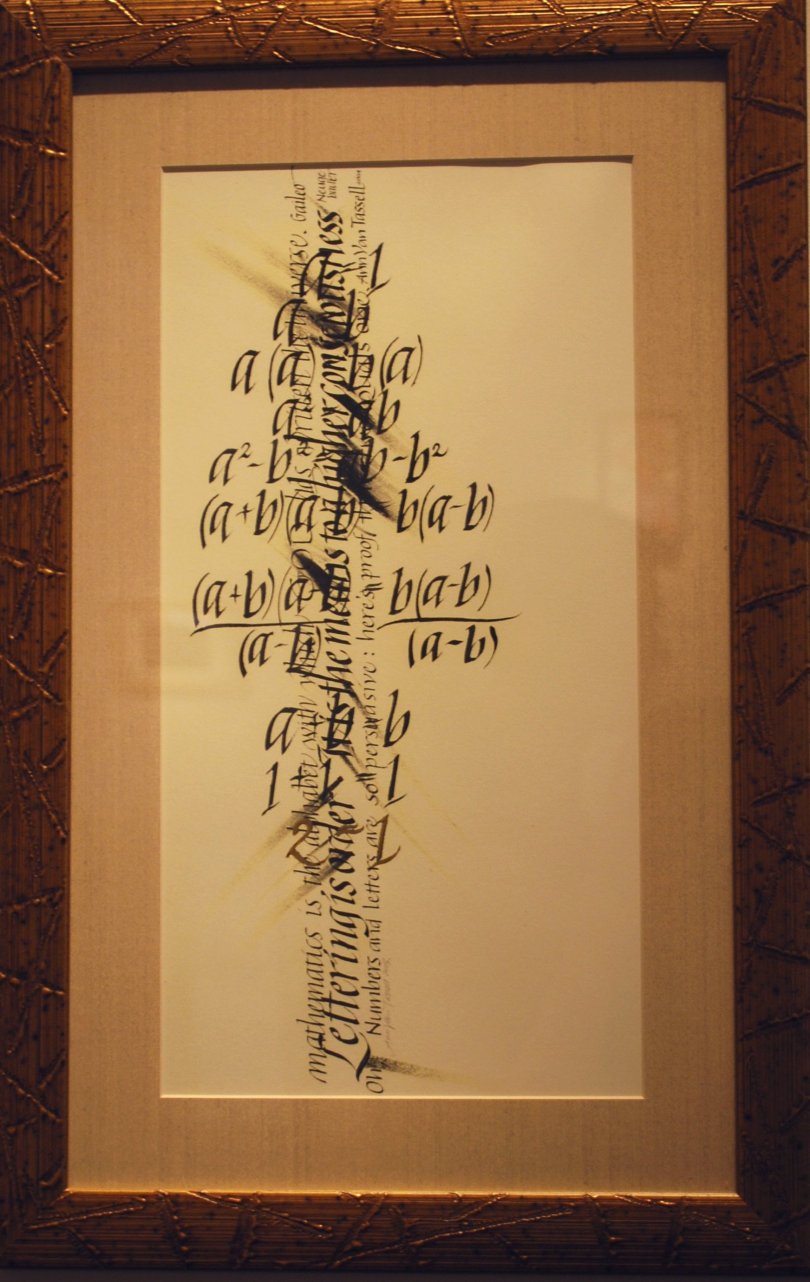 1
1
a (a) b(a)
a ab
a²-b² b-b²
(a+b)(a-b) b(a-b)
(a+b)(a-b) = b(a-b)
(a-b) (a-b)
a b
1+1=1
2=1
mathematics is the alphabet with which God has written the universe. Galileo
Lettering is order it is the means to a higher consciousness Neugebauer
Numbers and letters are so persuasive : here's proof equals one. Ann Van Tassell